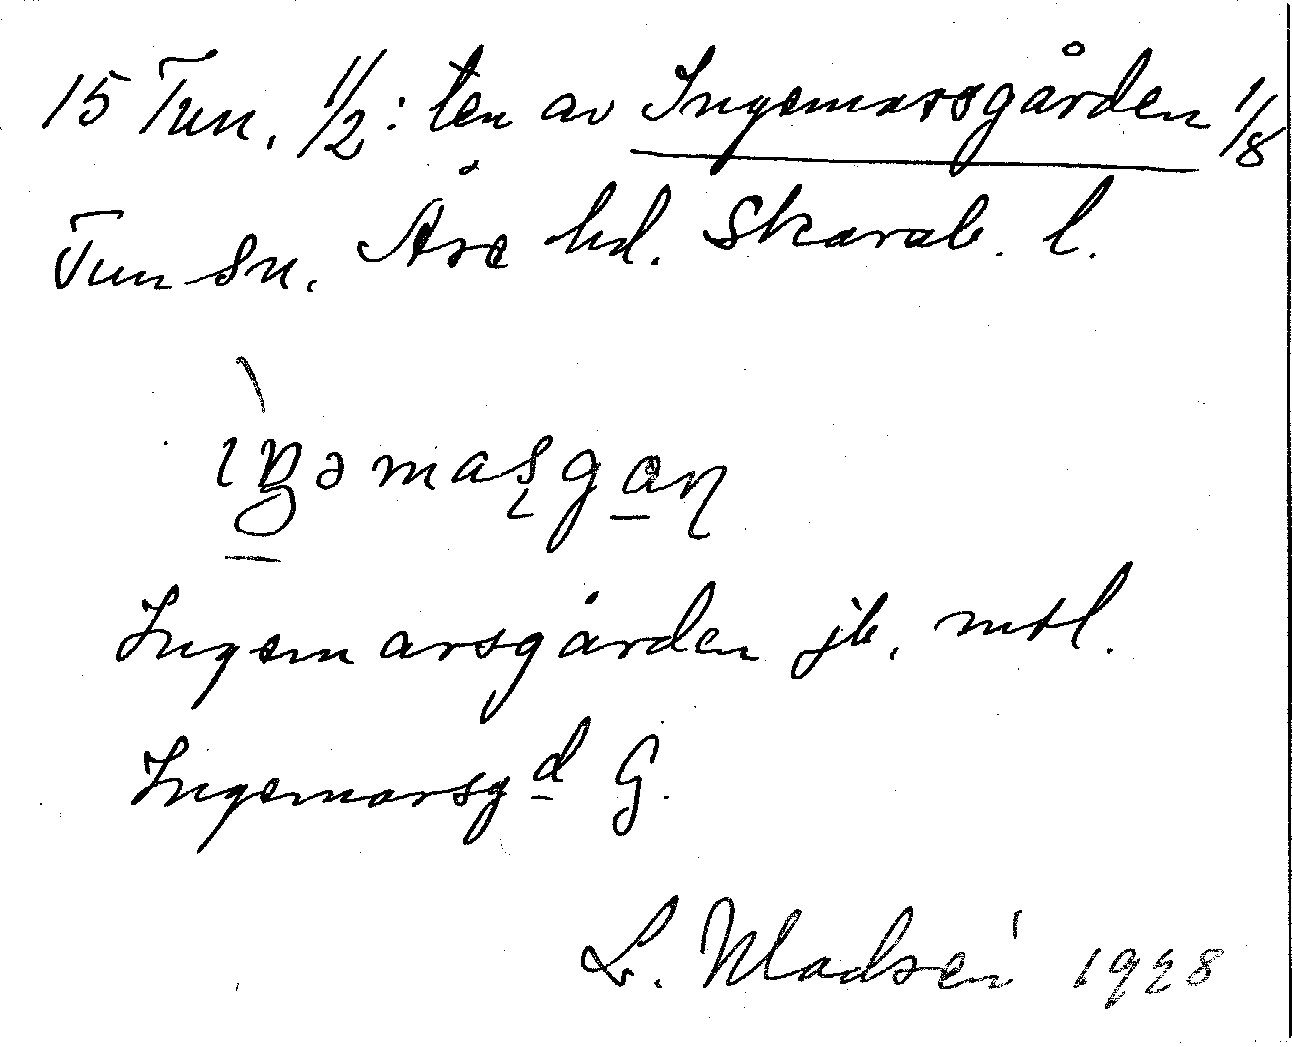 15 Tun, 1/2:ten av Ingemarsgården 1/8
Tun sn. Åse hd. Skarab. l.
Ingemarsgården jb, mtl.
Ingemarsgd G.
L. 1928